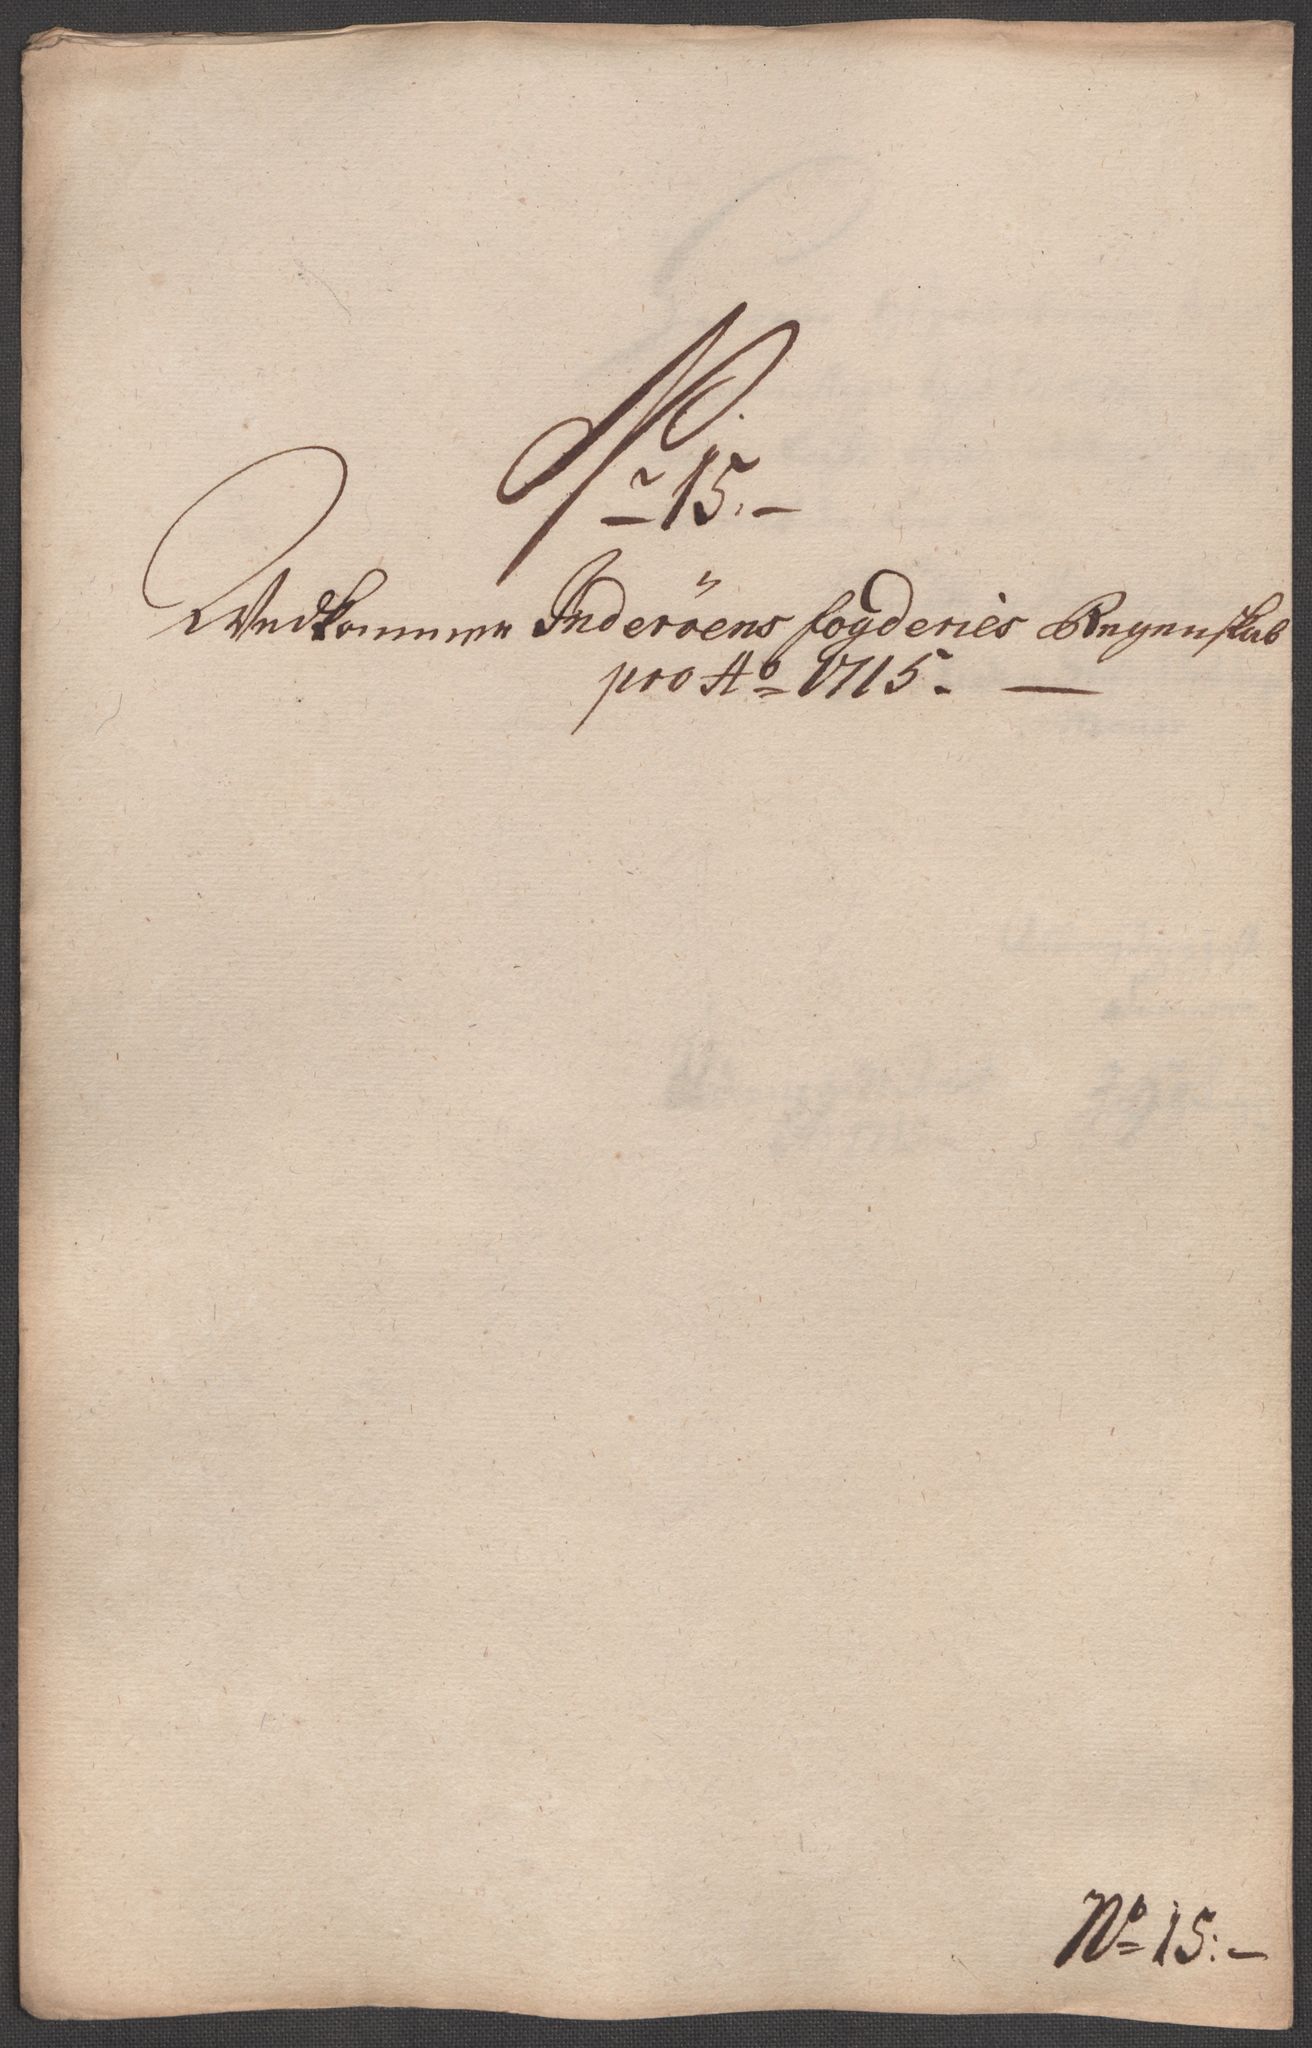 Nr 15.-
Vedkommer Inderöens fogderies Regenskab
pro Ao 1715. -
No 15:-